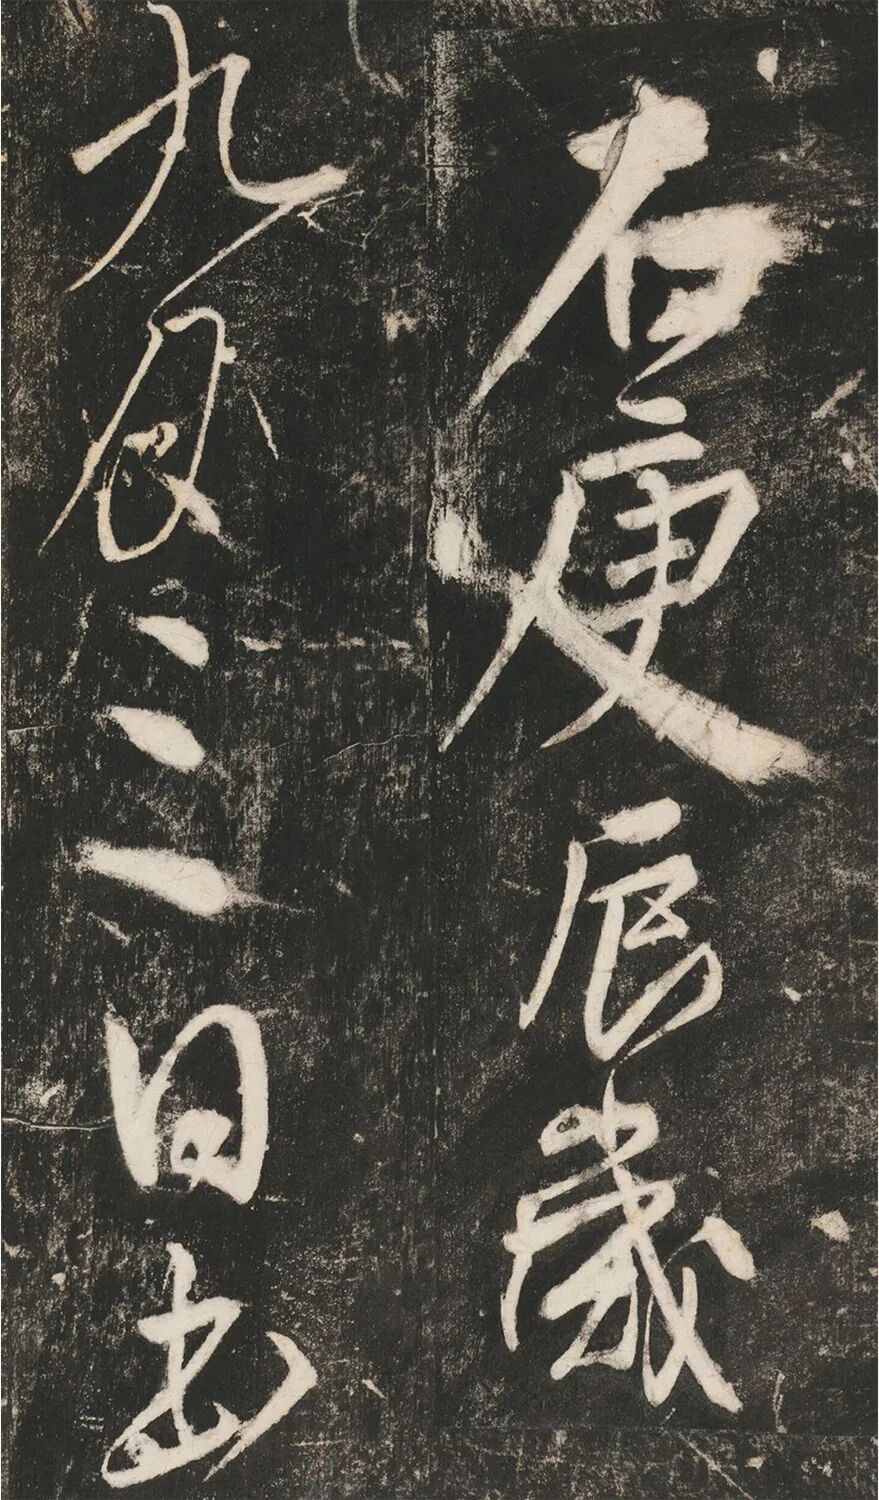 右庚辰歲
九月三日書